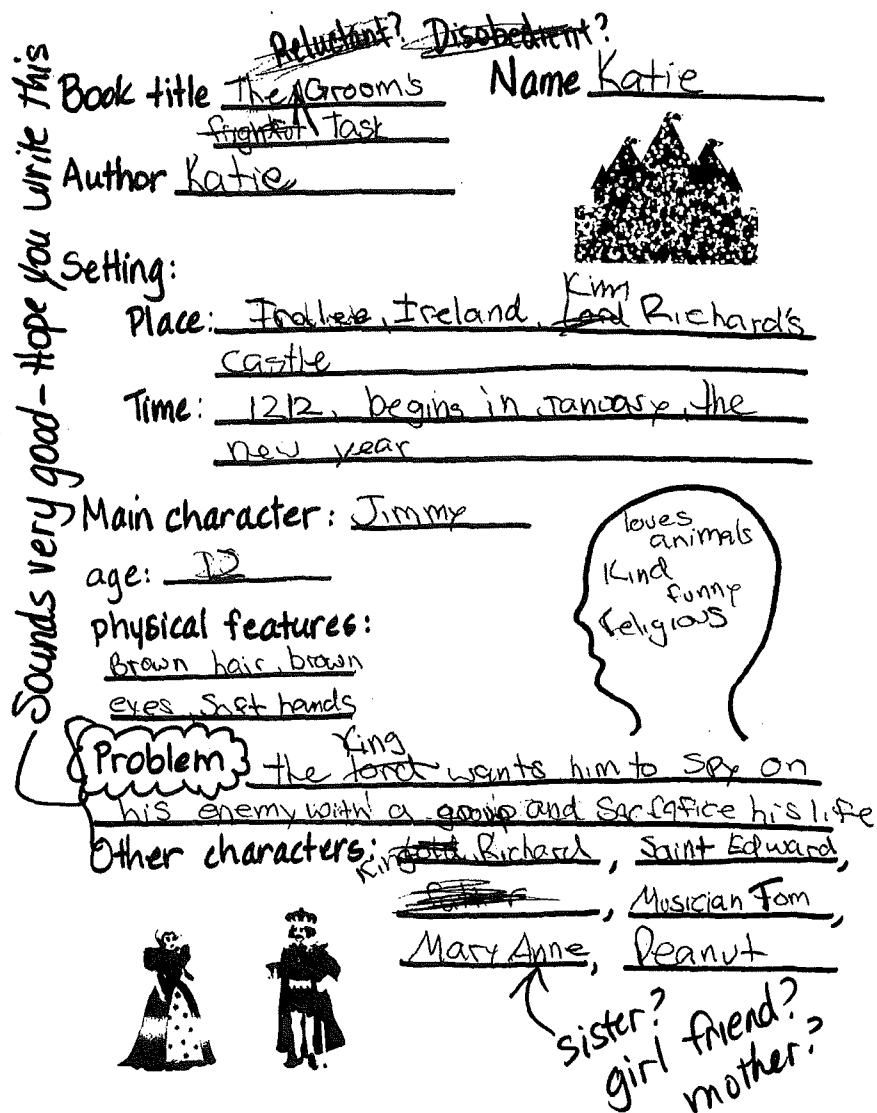 Reluctant? Disobedient?
Book title The Grooms
frightful Task
Name Katie
Author Katie
Sounds very good - Hope you write this
Setting:
Place: Ireland, King Lord Richard's
castle
Time: 1212, begins in January, the
new year
Main character: Jimmy
age: 12
physical features:
Brown hair, brown
eyes, Soft hands
loves
animals
Kind
funny
religious
Problem the lord King wants him to spy on
his enemy with a group and sacrafice his life
Other characters: King Lord Richard, Saint Edward,
father, Musician Tom,
Mary Anne, Peanut
sister?
girl friend?
mother?